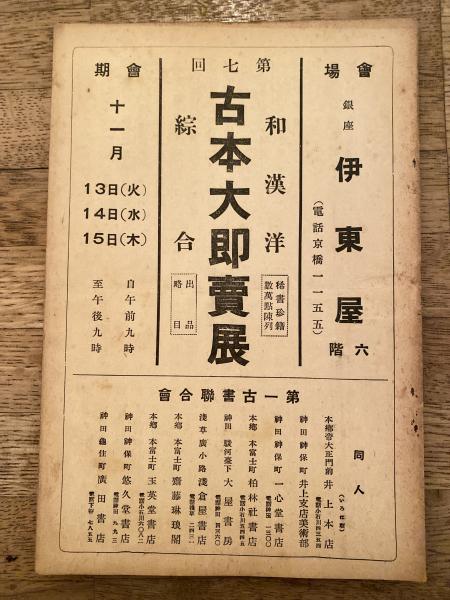 會場
銀座
伊東屋
六階
(電話京橋一一五五)
第七回
和漢洋
稀書珍籍
數萬點陳列
古本大即賣展
綜合
出品
略目
會期
十一月
13日(火)
14日(水)
15日(木)
自午前九時
至午後九時
第一古書聯合會
同人
本鄕帝大正門前 井上本店
神田神保町 井上支店美術部
神田神保町 一心堂書店
本鄕本富士町 柏林社書店
神田駿河臺下 大屋書房
淺草廣小路 淺倉屋書店
本鄕本富士町 齋藤琳琅閣
本鄕本富士町 玉英堂書店
神田神保町 悠久堂書店
神田龜住町 廣田書店